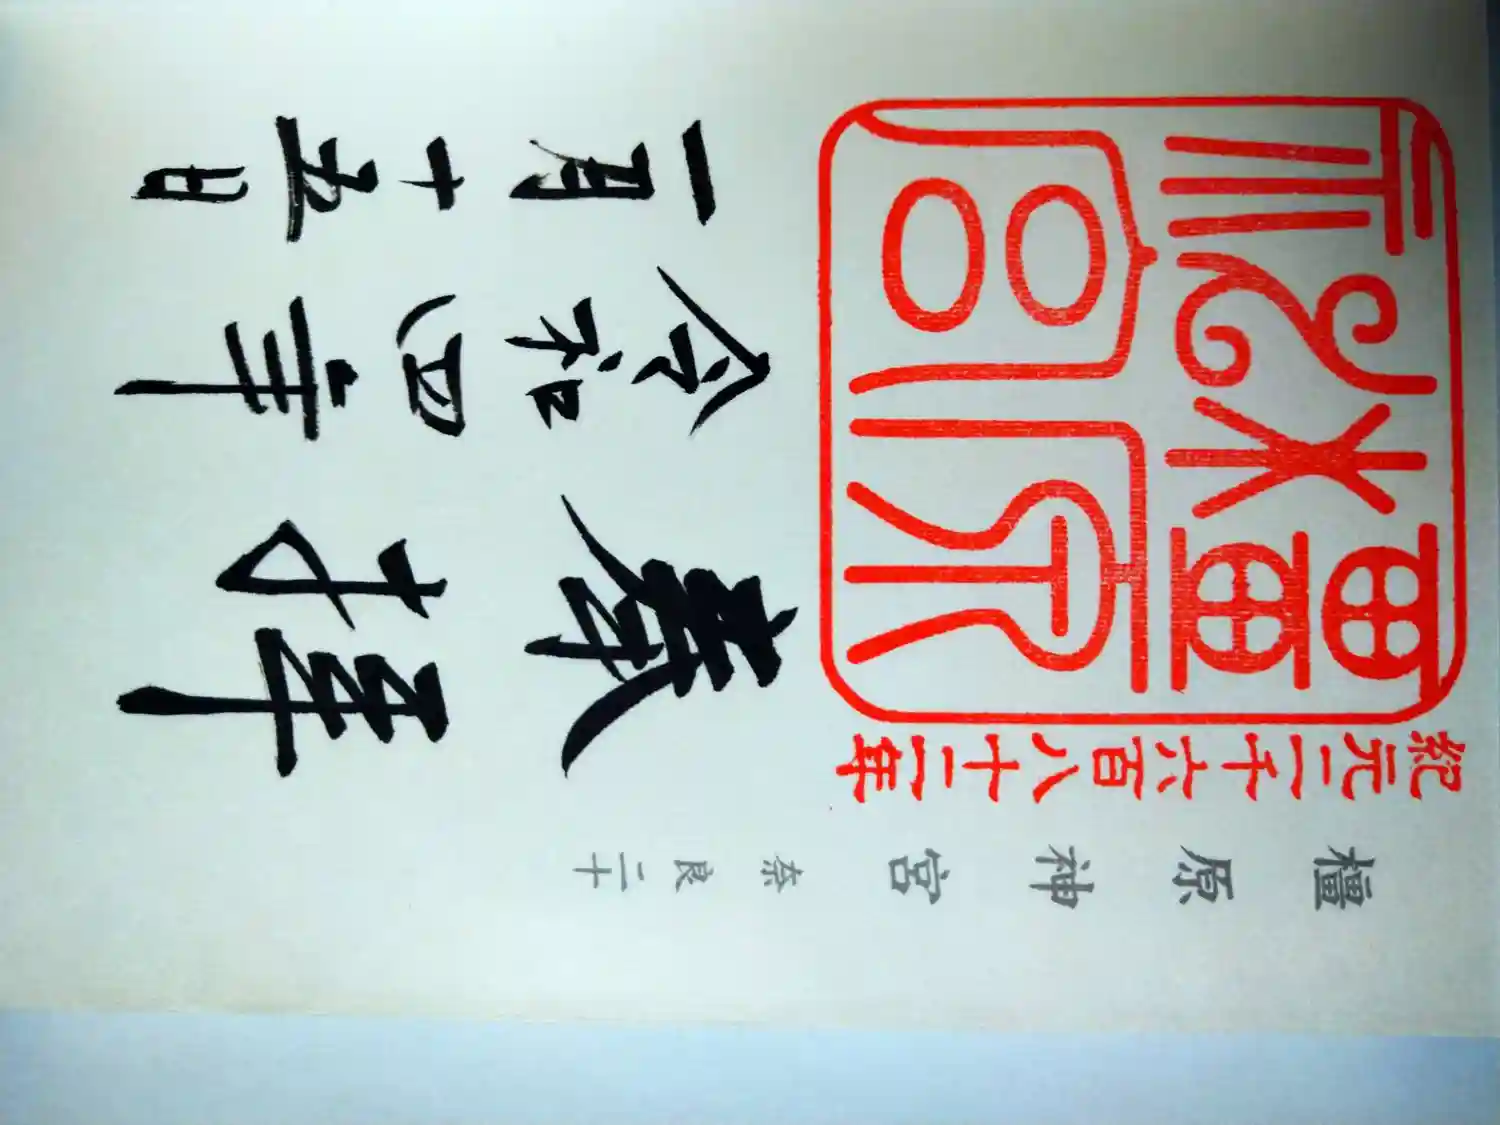 橿原神宮 奈良二十
紀元二千六百八十二年
橿原神宮
奉拝
令和四年
一月十五日